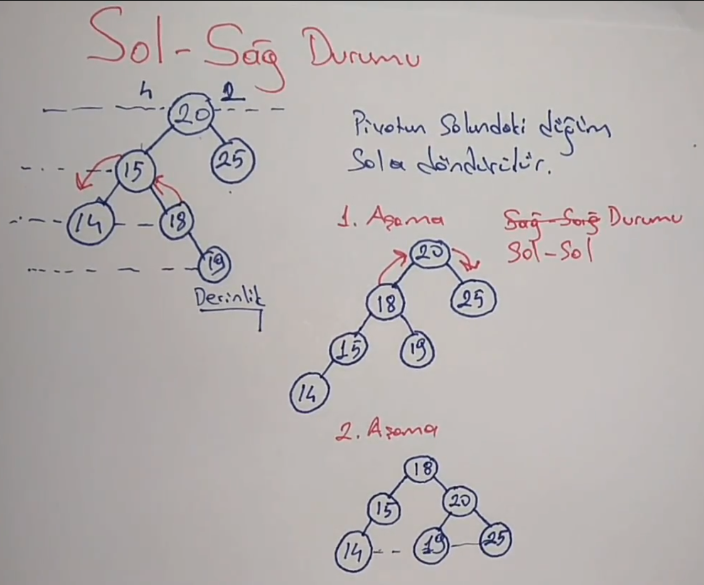 Sol-Sağ Durumu
4 2
20
15 25
14 18
19
Derinlik
Pivotun Solundaki düğüm
Sola döndürülür.
1. Aşama
Sağ-Sağ Durumu
Sol-Sol
20
18 25
15 19
14
2. Aşama
18
15 20
14 19 25